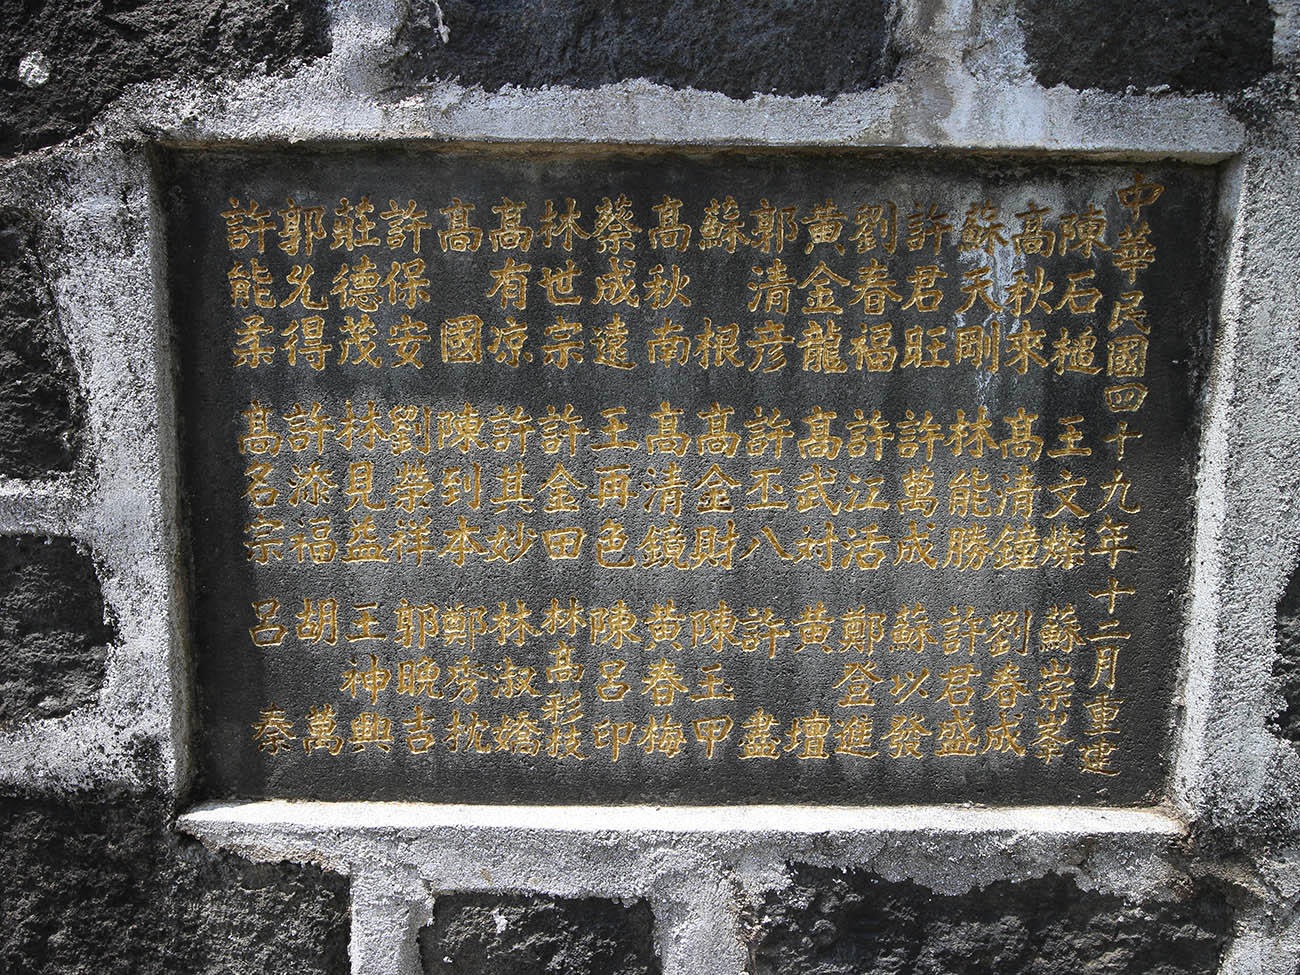 中華民國四十九年十二月重建
陳石槌 王文燦 蘇崇峯
高秋來 高清鐘 劉春成
蘇天剛 林能勝 許君盛
許君旺 許萬成 蘇以發
劉春福 許江活 鄭登進
黃金龍 高武對 黃壇
郭清彥 許丕八 許盡
蘇根 高金財 陳王甲
高秋南 高清鏡 黃春梅
蔡成遠 王再色 陳呂印
林世宗 許金田 林高彩枝
高有凉 許其妙 林淑嬌
高國 陳到本 鄭秀枕
許保安 劉榮祥 郭晚吉
莊德茂 林見益 王神興
郭允得 許添福 胡萬
許能柔 高名宗 呂秦